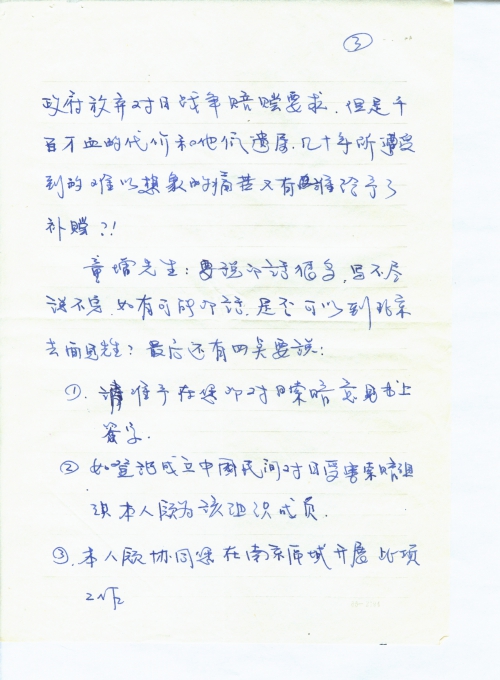 ③
政府放弃对日战争赔偿要求.但是千
百万血的代价和他们遗属,几十年所遭受
到的难以想象的痛苦又有谁给予了
补赔?!
童增先生:要说的话很多,写不尽
说不完.如有可能的话,是否可以到北京
去面见先生?最后还有四点要说:
①. 请准予在您的对日索赔意见书上
签字.
② 如登记成立中国民间对日受害索赔组
织本人愿为该组织成员.
③.本人愿协同您在南京区域开展此项
工作